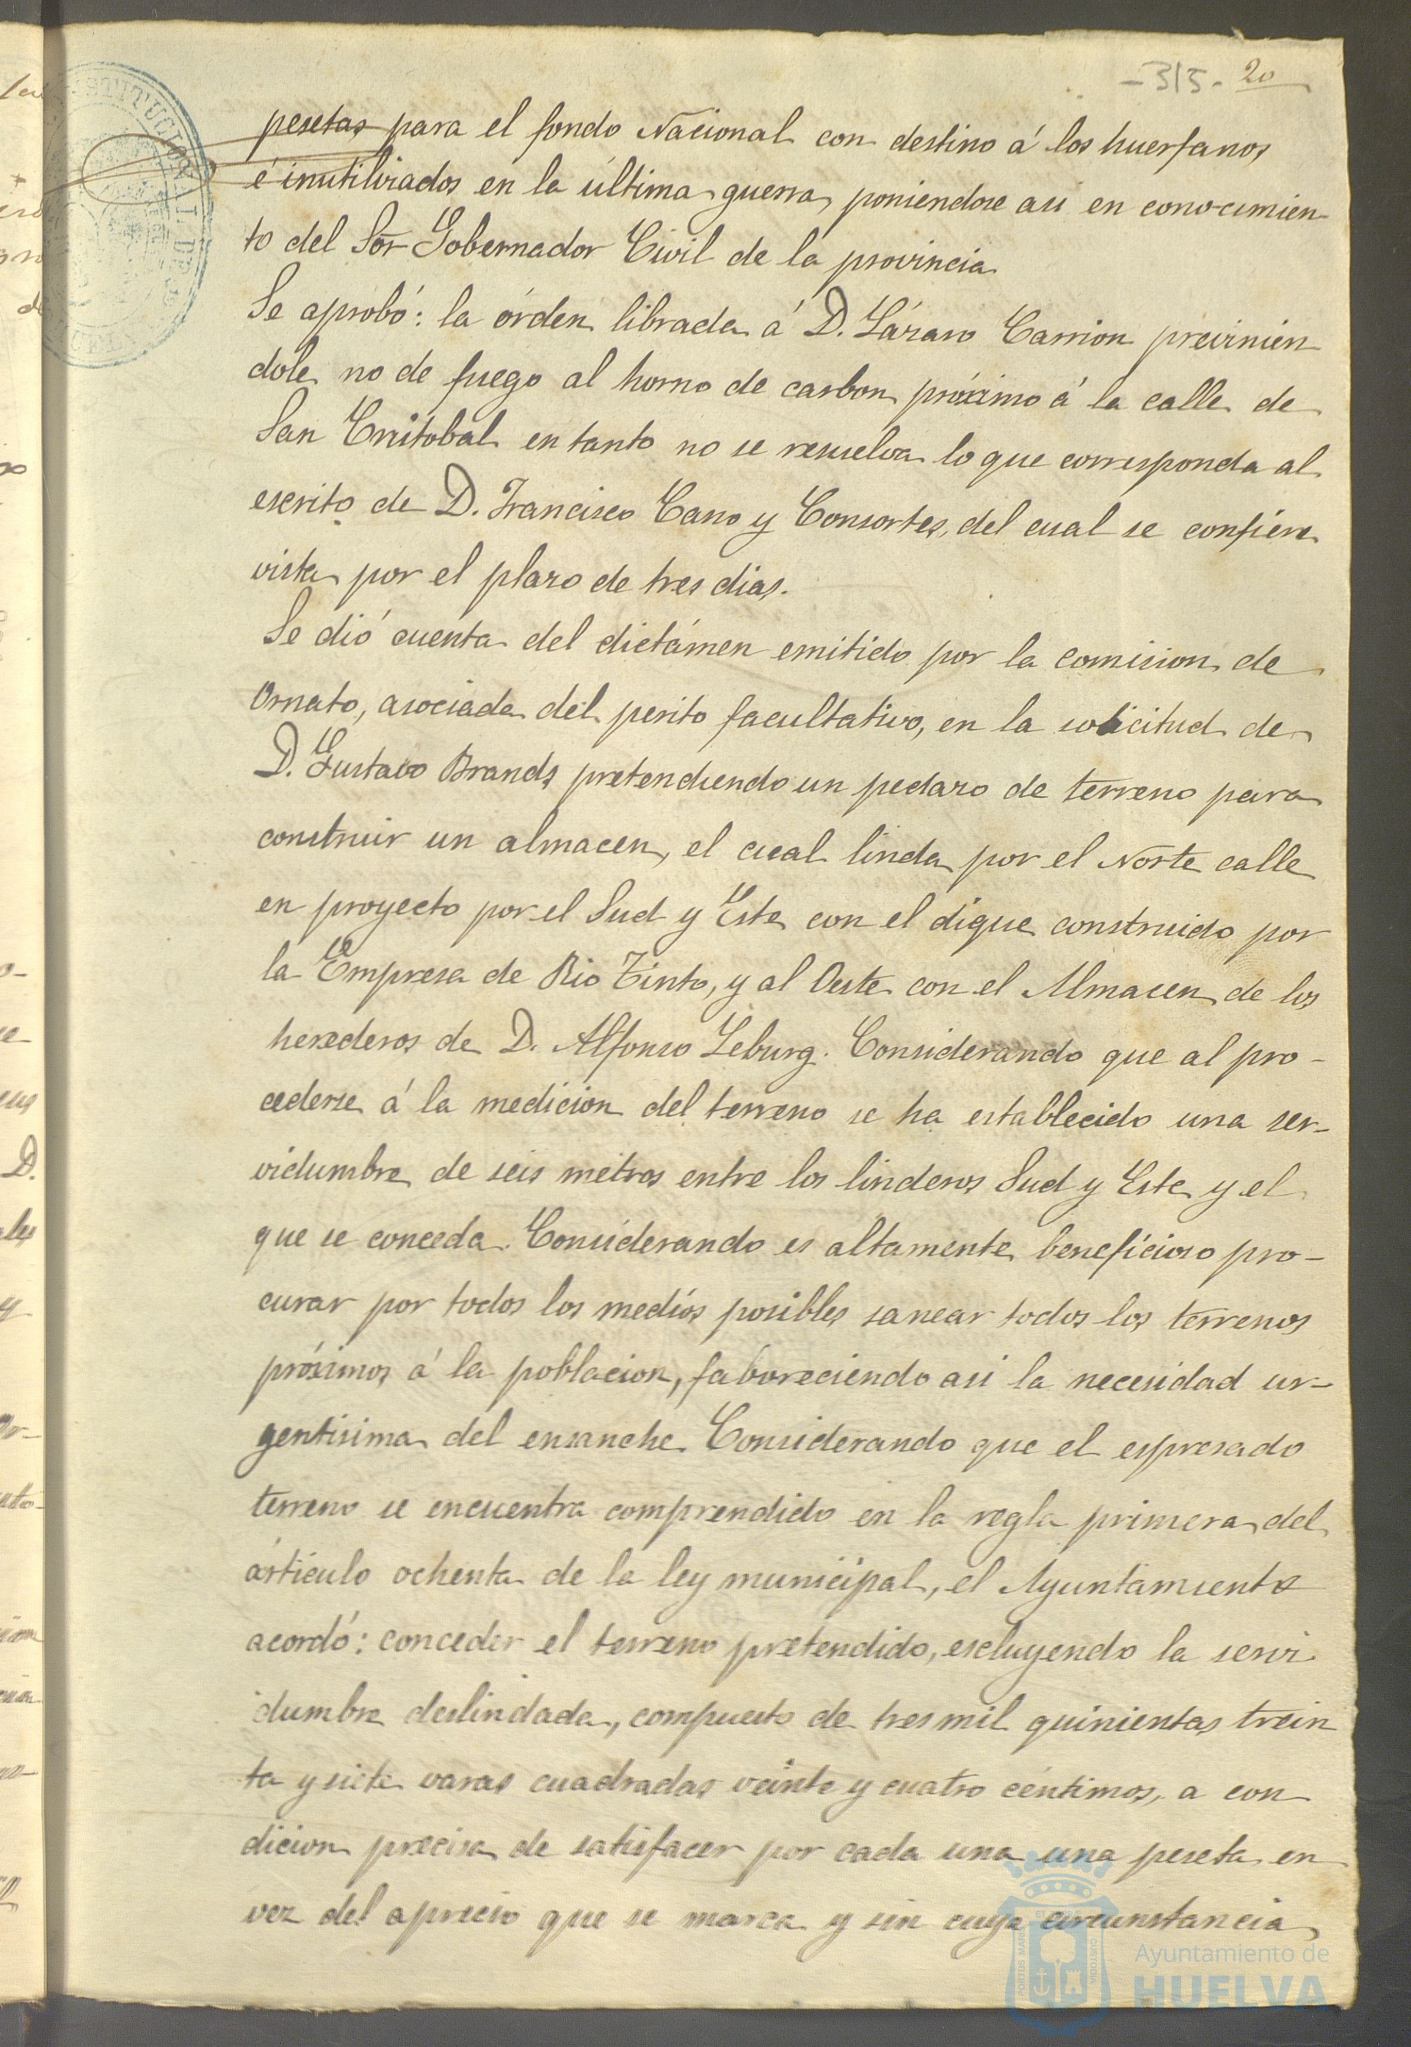 -315- 20
pesetas para el fondo Nacional con destino á los huerfanos
é inutilizados en la última guerra, poniendose asi en conocimien-
to del Sor Gobernador Civil de la provincia
Se aprobó: la órden librada á D. Lázaro Carrion previnien
dole no de fuego al horno de carbon próximo á la calle de
San Cristobal en tanto no se resuelva lo que corresponda al
escrito de D. Francisco Cano y Consortes, del cual se confiere
vista por el plazo de tres dias.
Se dió cuenta del dictámen emitido por la comision de
Ornato, asociada del perito facultativo, en la solicitud de
D. Gustavo Brands pretendiendo un pedazo de terreno para
construir un almacen, el cual linda por el Norte calle
en proyecto por el Sud y Este con el dique construido por
la Empresa de Rio Tinto, y al Oeste con el Almacen de los
herederos de D. Alfonso Leburg. Considerando que al pro-
cederse á la medicion del terreno se ha establecido una ser-
vidumbre de seis metros entre los linderos Sud y Este y el
que se conceda. Considerando es altamente beneficioso pro-
curar por todos los medios posibles sanear todos los terrenos
próximos á la poblacion, faboreciendo asi la necesidad ur-
gentisima del ensanche. Considerando que el espresado
terreno se encuentra comprendido en la regla primera del
árticulo ochenta de la ley municipal, el Ayuntamiento
acordó: conceder el terreno pretendido, escluyendo la servi
dumbre deslindada, compuesto de tres mil quinientas trein
ta y siete varas cuadradas veinte y cuatro céntimos, a con
dicion precisa de satisfacer por cada una una peseta en
vez del aprecio que se marca y sin cuya circunstancia
Ayuntamiento de
HUELVA